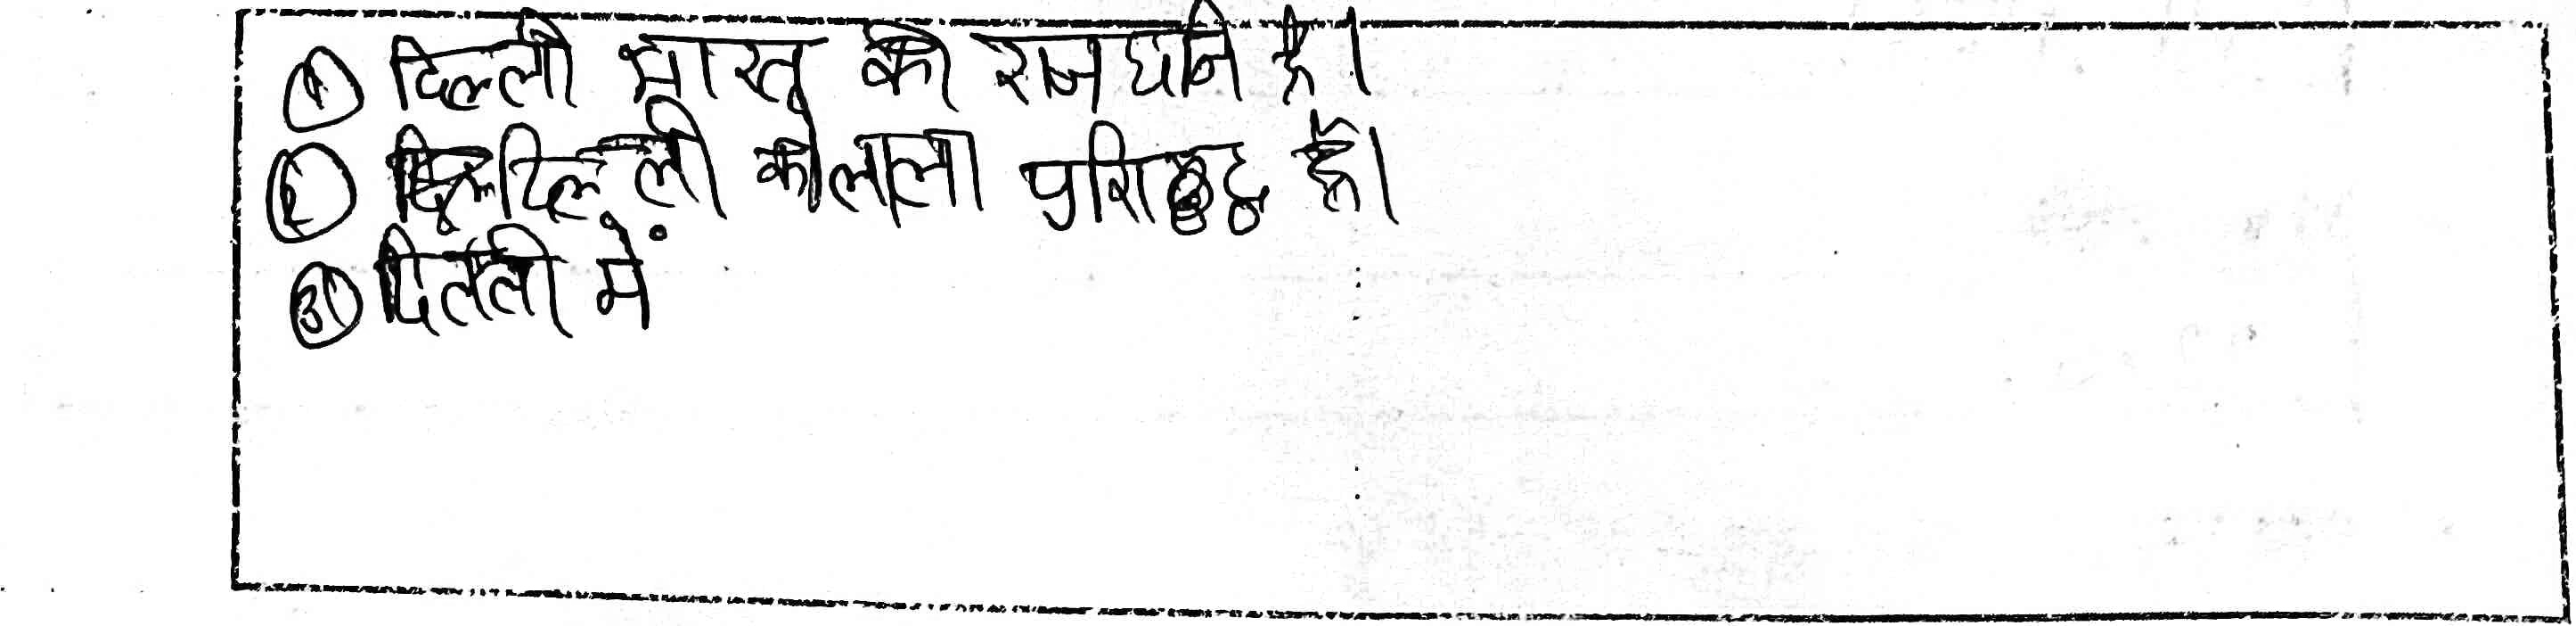 ① दिल्ली भारत की राजधानि है।
② दिल्ली का लाला प्रशिद्ध है।
③ दिल्ली में